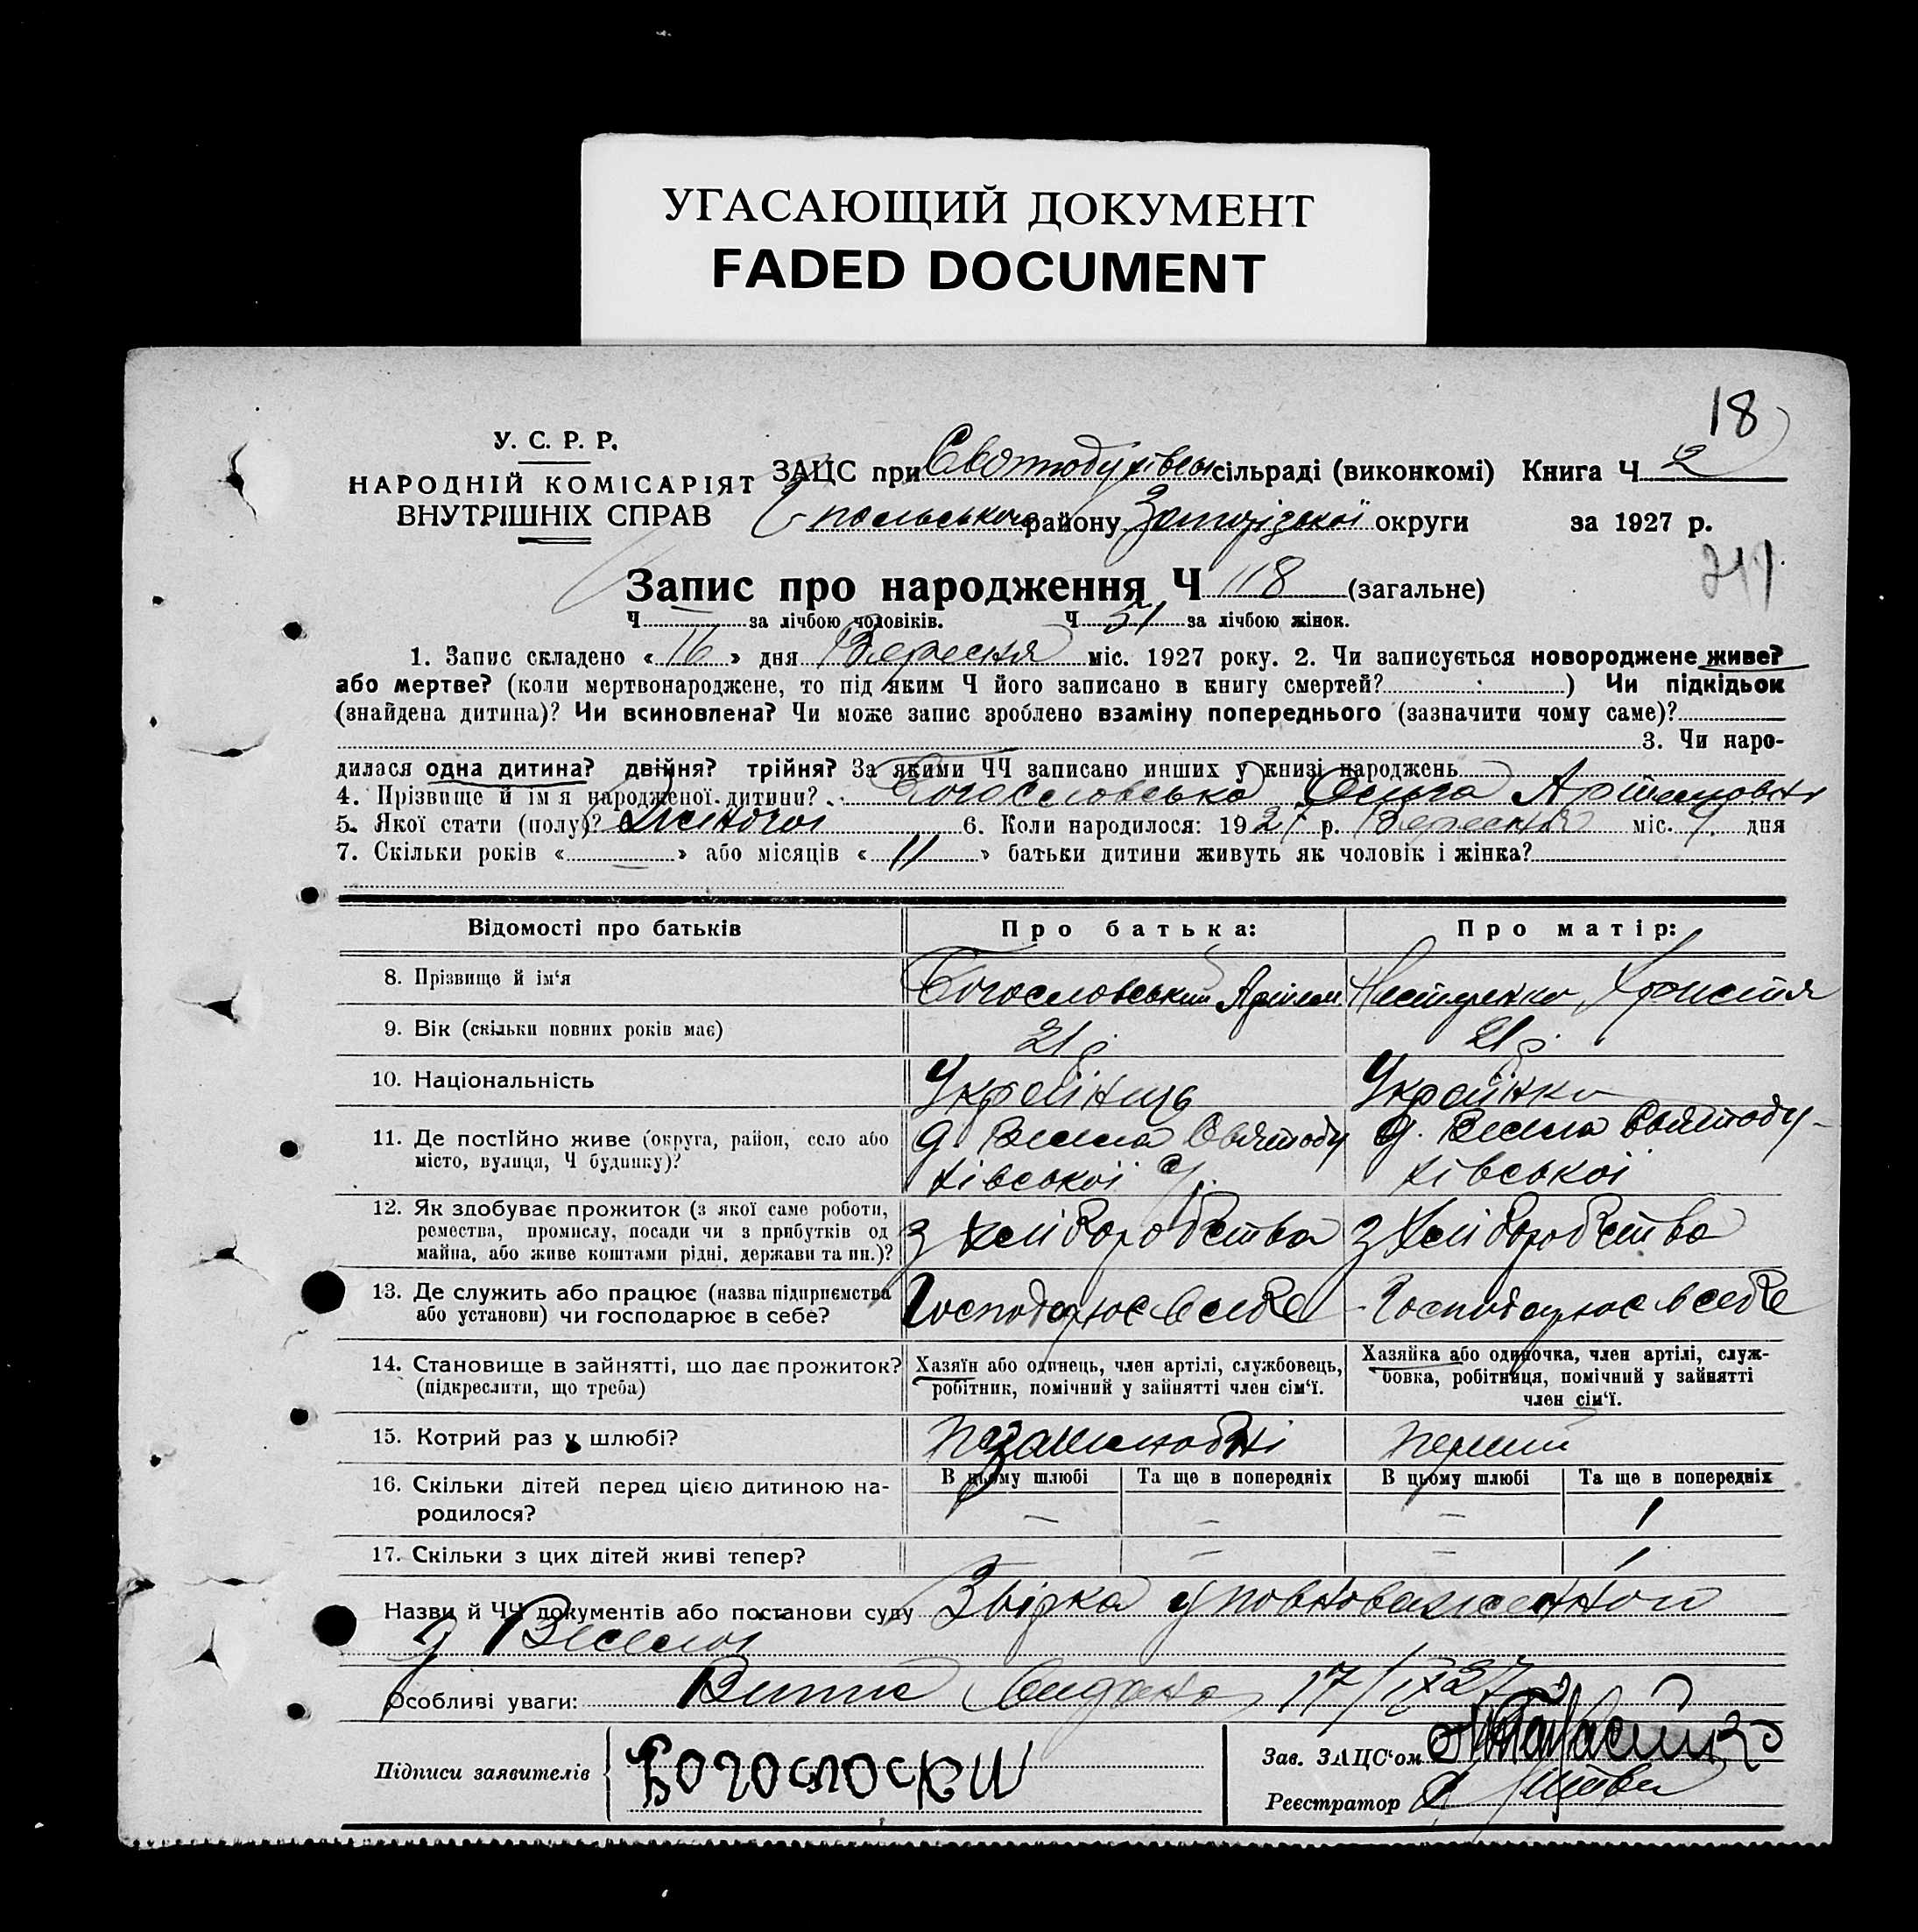 УГАСАЮЩИЙ ДОКУМЕНТ
FADED DOCUMENT
18
У. С. Р. Р.
НАРОДНІЙ КОМІСАРІЯТ
ВНУТРІШНІХ СПРАВ
ЗАЦС при Святодухівськ сільраді (виконкомі) Книга Ч 2
району Запорізької округи за 1927 р.
Запис про народження Ч 118 (загальне)
Ч за лічбою чоловіків. Ч 51 за лічбою жінок.
1. Запис складено « 16 » дня Вересня міс. 1927 року. 2. Чи записується новороджене живе?
або мертве? (коли мертвонароджене, то під яким Ч його записано в книгу смертей? ) Чи підкідьок
(знайдена дитина)? Чи всиновлена? Чи може запис зроблено взаміну попереднього (зазначити чому саме)?
3. Чи наро-
дилася одна дитина? двійня? трійня? За якими ЧЧ записано инших у книзі народжень
4. Прізвище й ім'я народженої дитини? Богословська Ольга Артемовна
5. Якої стати (полу)? Жіночої 6. Коли народилося: 1927 р. Вересня міс. 9 дня
7. Скільки років « — » або місяців « 11 » батьки дитини живуть як чоловік і жінка?
Відомості про батьків Про батька: Про матір:
8. Прізвище й ім'я Богословський Артем Нестеренко Христя
9. Вік (скільки повних років має) 21 р. 21 р.
10. Національність Українець Українка
11. Де постІйно живе (округа, район, село або
місто, вулиця, Ч будинку)? д. Весела Святоду
хівської с/р. д. Весела Святоду-
хівської
12. Як здобуває прожиток (з якої саме роботи,
ремества, промислу, посади чи з прибутків од
майна, або живе коштами рідні, держави та ин.)? З хліборобства З хліборобства
13. Де служить або працює (назва підприємства
або установи) чи господарює в себе? Господарює в себе Господарює в себе
14. Становище в зайнятті, що дає прожиток?
(підкреслити, що треба)
Хазяїн або одинець, член артілі, службовець,
робітник, помічний у зайнятті член сім'ї.
Хазяйка або одиночка, член артілі, служ-
бовка, робітниця, помічний у зайнятті
член сім'ї.
15. Котрий раз у шлюбі? перший
16. Скільки дітей перед цією дитиною на-
родилося?
В цьому шлюбі Та ще в попередніх В цьому шлюбі Та ще в попередніх
— — — 1
17. Скільки з цих дітей живі тепер? — — 1
Назви й ЧЧ документів або постанови суду Збірка уповноваженного
д Веселої
Особливі уваги: Видано 17/IX 27
Підписи заявителів Богослоски
Зав. ЗАЦС'ом
Реєстратор